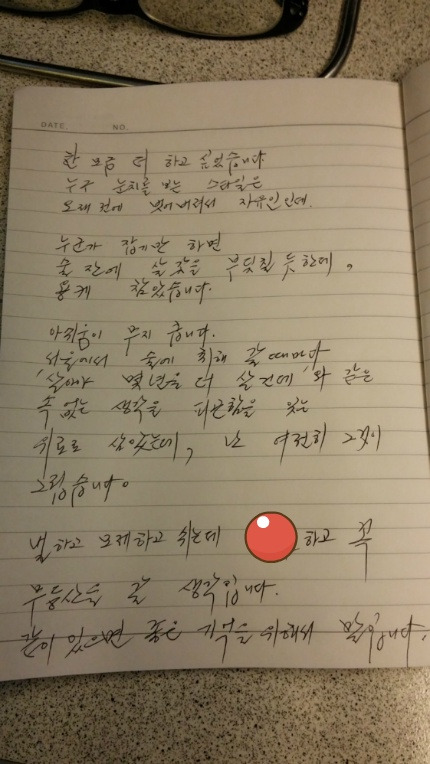 DATE. NO.
한 모금 더 하고 싶었습니다
누구 눈치를 보는 스타일은
오래 전에 벗어버려서 자유인인데.
누군가 잡기만 하면
술 잔에 살 갗을 부딪칠 듯한데,
용케 참았습니다.
아쉬움이 무지 큽니다.
서울에서 술에 취해 갈 때마다
'살아야 몇 년을 더 살건데'와 같은
속 없는 생각을 피곤함을 잊는
위로로 삼았는데, 난 여전히 그것이
그립습니다.
하고 쉬는데 하고 꼭
무등산을 갈 생각입니다.
같이 있으면 좋은 기억을 위해서 말입니다.